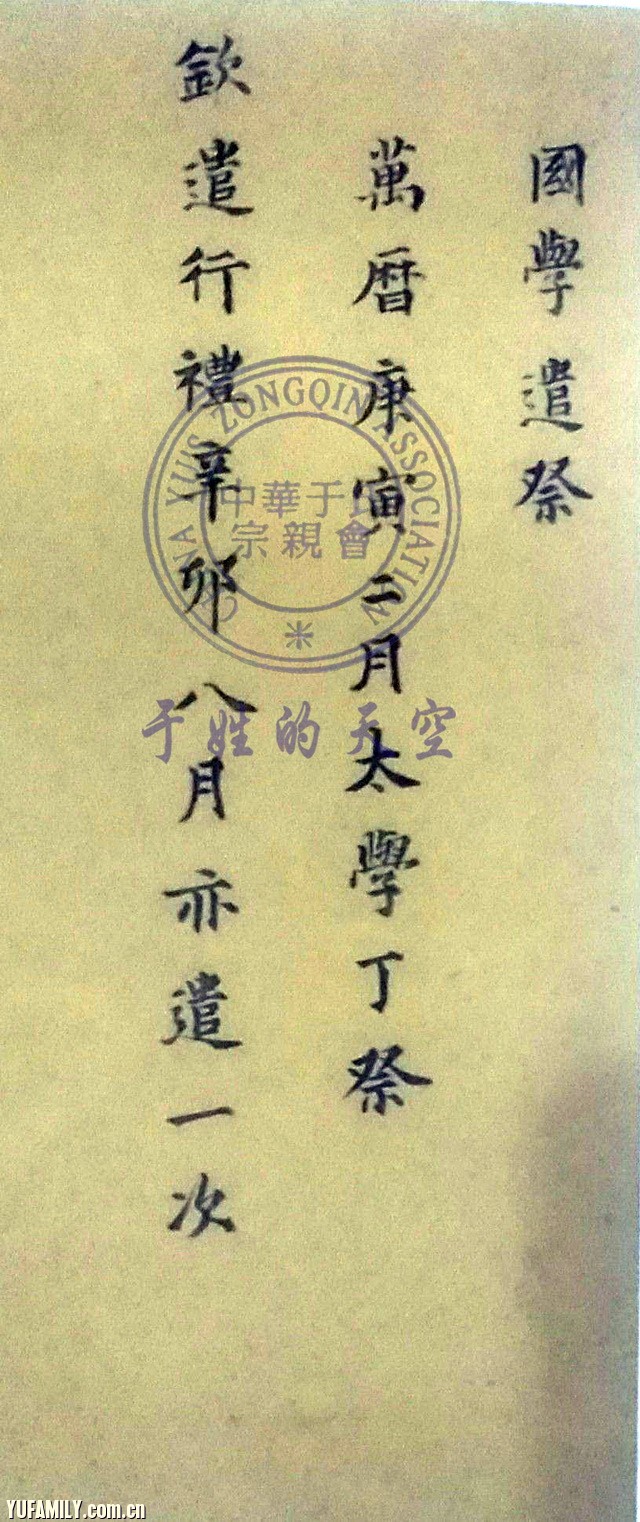 國學遣祭
萬曆庚寅二月太學丁祭
欽遣行禮辛卯八月亦遣一次
CHINA YU'S ZONGQIN ASSOCIATION
中華于氏
宗親會
于姓的天空
YUFAMILY.com.cn